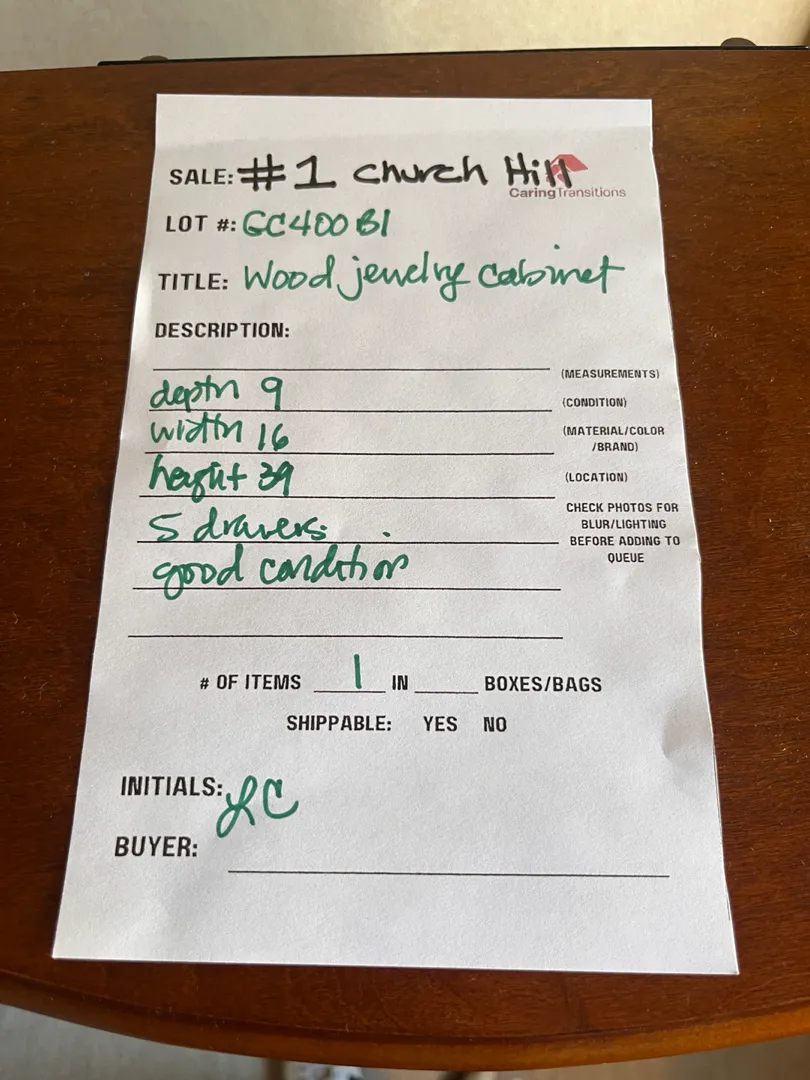 SALE: #1 Church Hill
CaringTransitions
LOT #: GC400B1
TITLE: Wood jewelry cabinet
DESCRIPTION:
(MEASUREMENTS)
depth 9
(CONDITION)
width 16
(MATERIAL/COLOR
/BRAND)
height 39
(LOCATION)
5 drawers.
CHECK PHOTOS FOR
BLUR/LIGHTING
BEFORE ADDING TO
QUEUE
good condition
# OF ITEMS 1 IN BOXES/BAGS
SHIPPABLE: YES NO
INITIALS: LC
BUYER: